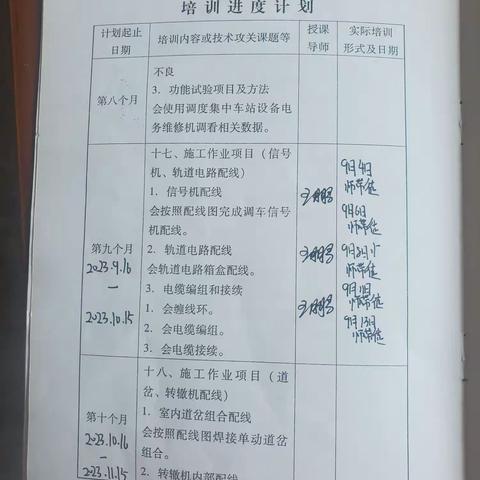 培训进度计划
计划起止
日期
培训内容或技术攻关课题等
授课
导师
实际培训
形式及日期
第八个月
不良
3．功能试验项目及方法
会使用调度集中车站设备电
务维修机调看相关数据。
第九个月
2023.9.16
—
2023.10.15
十七、施工作业项目（信号
机、轨道电路配线）
1．信号机配线
会按照配线图完成调车信号
机配线。
2．轨道电路配线
会轨道电路箱盒配线。
3．电缆编组和接续
1．会缠线环。
2．会电缆编组。
3．会电缆接续。
9月4日
师带徒
9月6日
师带徒
师带徒
师带徒
9月13日
师带徒
第十个月
2023.10.16
—
2023.11.15
十八、施工作业项目（道
岔、转辙机配线）
1．室内道岔组合配线
会按照配线图焊接单动道岔
组合。
2．转辙机内部配线